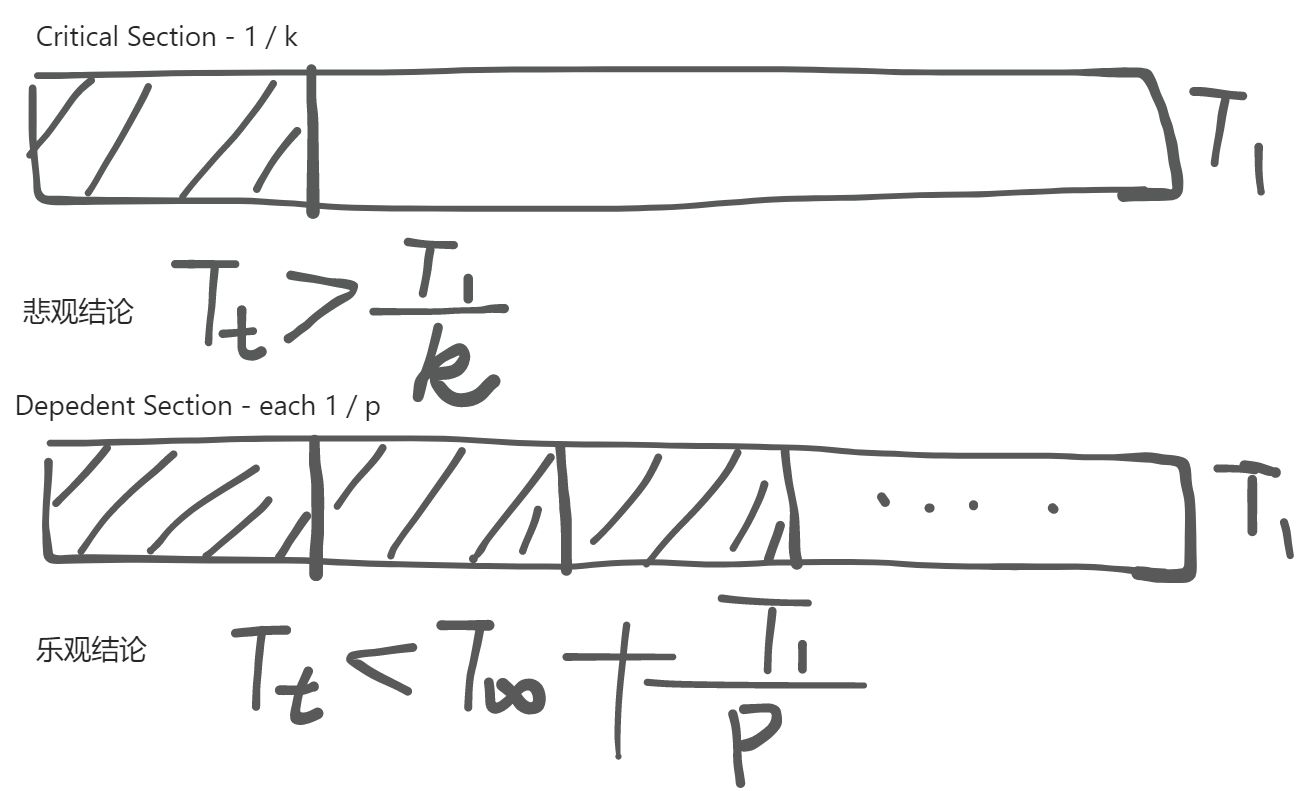 Critical Section - 1 / k
T₁
悲观结论 Tₜ > T₁/k
Depedent Section - each 1 / p
. . . . T₁
乐观结论 Tₜ < T∞ + T₁/p